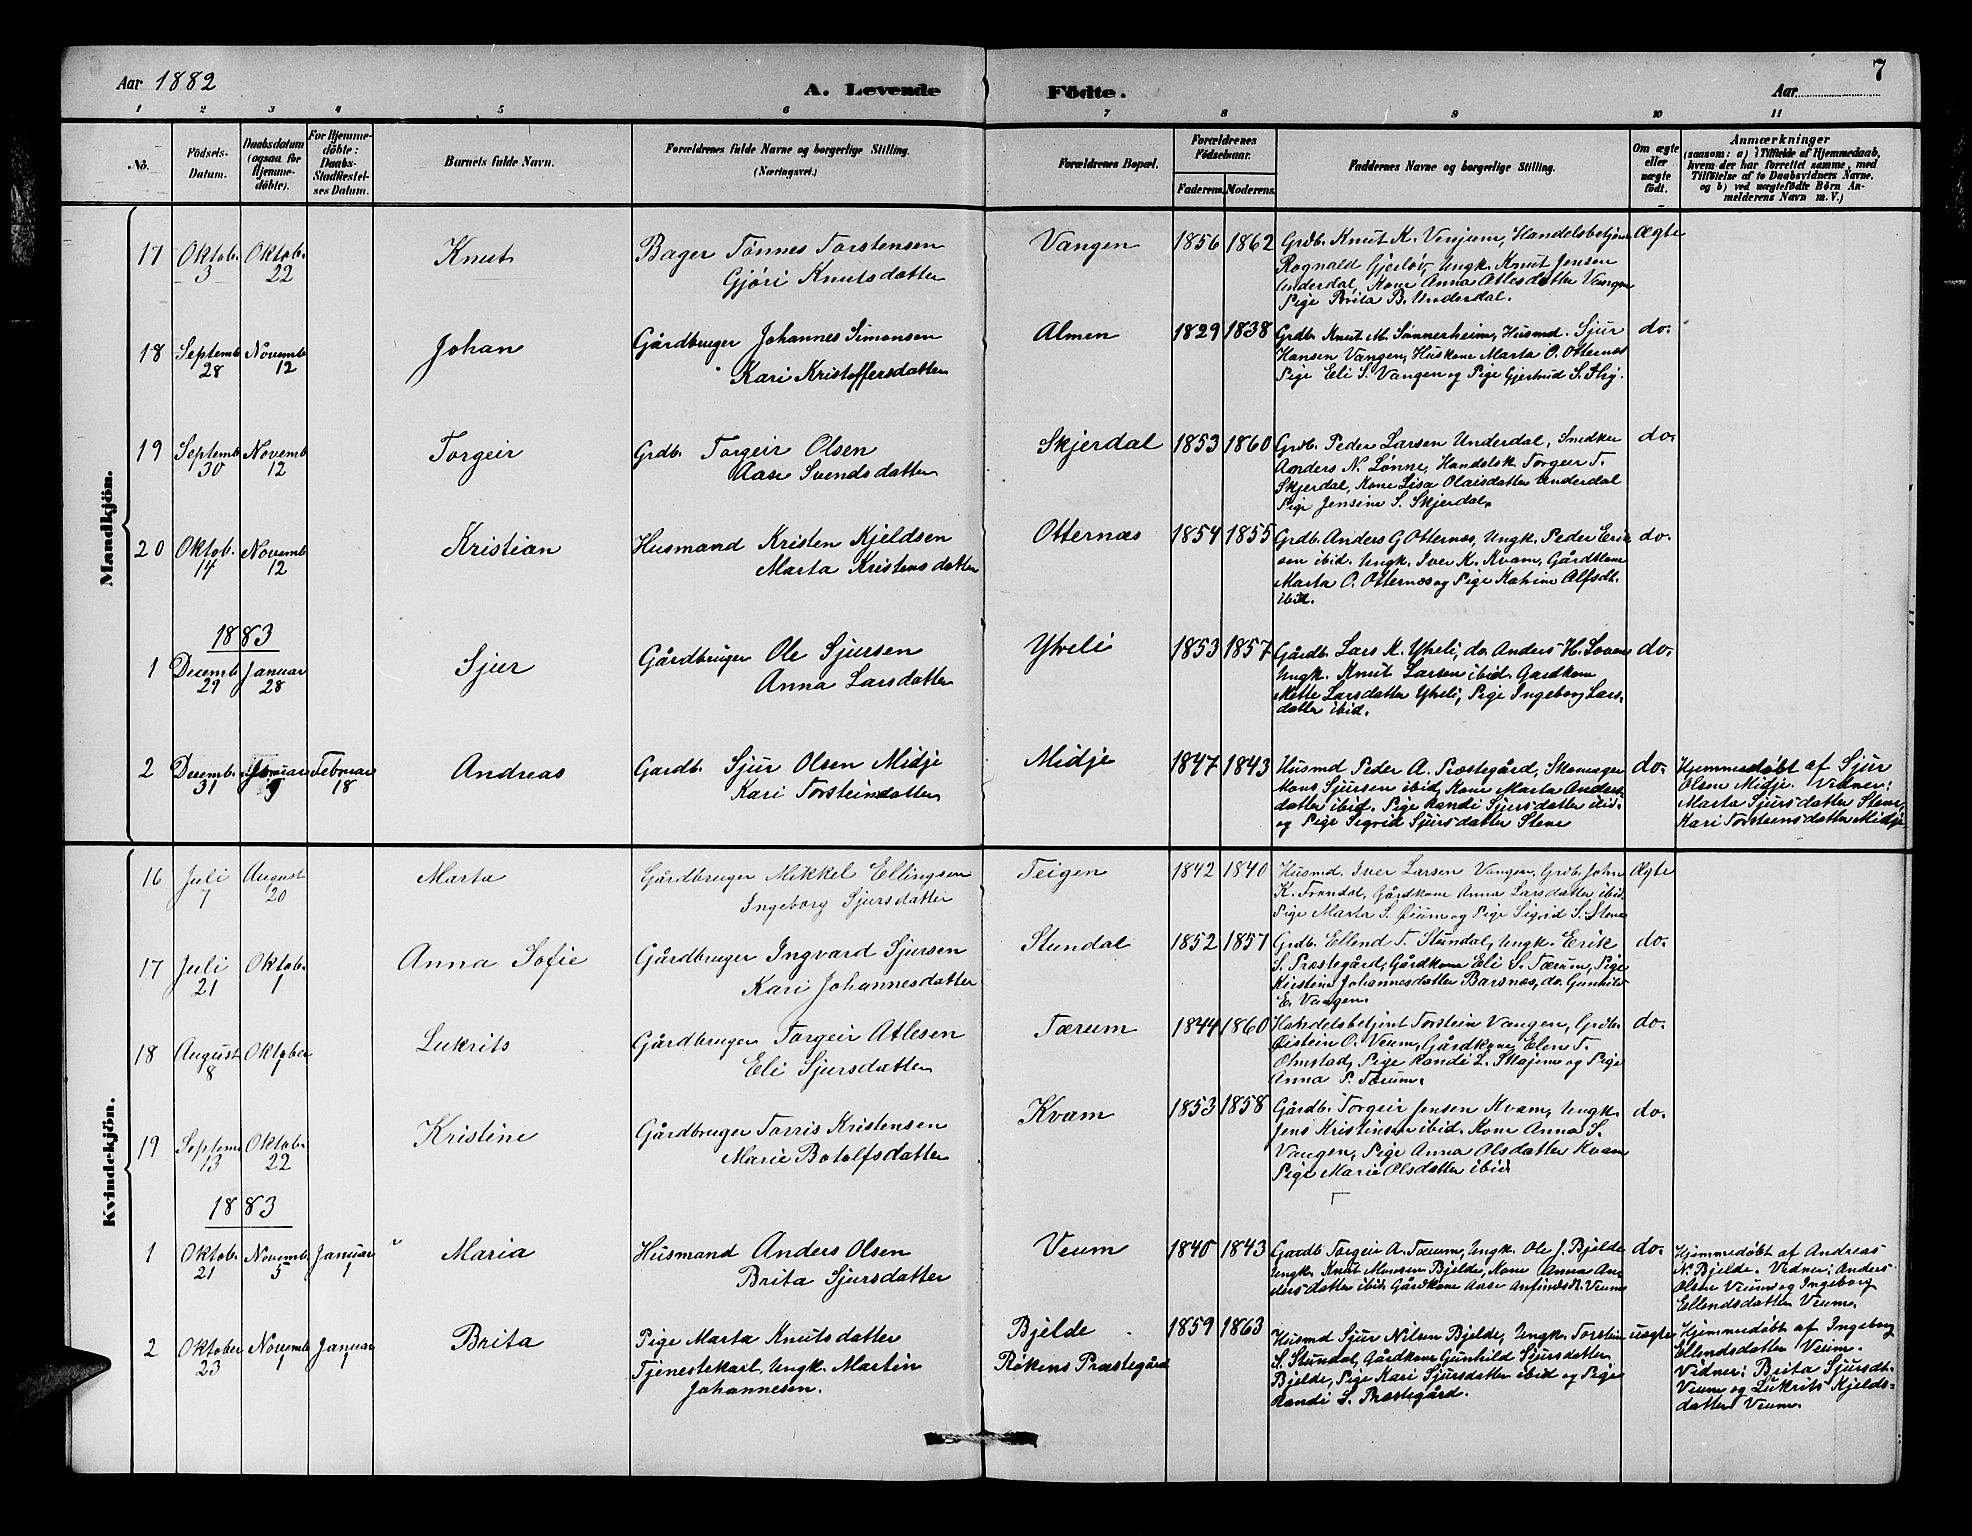 Aar 1882
A. Levende Födte.
Aar
7
1 2 3 4 5 6 7 8 9 10 11
No. Födsels-Datum. Daabsdatum (ogsaa for Hjemmedöbte). For Hjemmedöbte: Daabs-Stadfæstelses Datum. Barnets fulde Navn. Forældrenes fulde Navne og borgerlige Stilling. (Næringsvei.) Forældrenes Bopæl. Forældrenes Födselsaar. Faderens. Moderens. Faddernes Navne og borgerlige Stilling. Om ægte eller uægte födt. Anmærkninger (saasom: a) i Tilfælde af Hjemmedaab, hvem der har forrettet samme, med Tilföielse af to Daabsvidners Navne, og b) ved uægtefödte Börn Anmelderens Navn m. V.)
Mandkjön.
17 Oktob. 3 Oktob. 22 Knut Bager Tønnes Torstensen Vangen 1856 1862 Grdb. Knut K. Venjum, Handelsbetjent Ægte
Gjøri Knutsdatter Rognald Gjerløv, Ungk. Knut Jensen
Underdal, Kone Anna Atlesdatter Vangen
Pige Brita B. Underdal.
18 Septemb 28 Novemb 12 Johan Gårdbruger Johannes Simonsen Almen 1829 1838 Grdb. Knut M. Sønnerheim, Husmd. Sjur do.
Kari Kristoffersdatter Hansen Vangen, Huskone Marta O. Otternæs
Pige Eli S. Vangen og Pige Gjertrud S. Fhy.
19 Septemb 30 Novemb 12 Torgeir Grdb. Torgeir Olsen Skjerdal 1853 1860 Grdb. Peder Larsen Underdal, Snedker do.
Aase Svendsdatter Anders N. Lønne, Handelsk. Torgeir T.
Skjerdal, Kone Lisa Olaisdatter Underdal
Pige Jensine S. Skjerdal.
20 Oktob. 14 Novemb 12 Kristian Husmand Kristen Kjeldsen Otternæs 1854 1855 Grdb. Anders G Otternæs, Ungk. Peder Erik do.
Marta Kristensdatter sen ibid. Ungk. Iver K. Kvam, Gårdkone
Marta O. Otternæs og Pige Katrine Alfsdt.
ibid.
1883
1 Desemb 29 Januar 28 Sjur Gårdbruger Ole Sjursen Ytreli 1853 1857 Gårdb. Lars K. Ytreli, do. Anders H. Loven do.
Anna Larsdatter Ungk. Knut Larsen ibid. Gardkone
Mette Larsdatter Ytreli, Pige Ingeborg Lars-
datter ibid.
2 Desemb. 31 Januar 9 Februar 18 Andreas Gardb. Sjur Olsen Midje Midje 1847 1843 Husmd Peder A. Præstegård, Skomager do. Hjemmedøbt af Sjur
Kari Torsteinsdatter Mons Sjursen ibid, Kone Marta Anders- Olsen Midje. Vidner:
datter ibid. Pige Randi Sjursdatter ibid. Marta Sjursdatter Stene,
og Pige Sigrid Sjursdatter Stene Kari Torsteensdatter Midje
Kvindekjön.
16 Juli 7 August 20 Marta Gårdbruger Mikkel Ellingsen Teigen 1842 1840 Husmd. Iver Larsen Vangen, Grdb. John Ægte
Ingeborg Sjursdatter K. Frondal, Gårdkone Anna Larsdatter ibid
Pige Marta S. Øium og Pige Sigrid S. Stene
17 Juli 21 Oktob. 1 Anna Sofie Gårdbruger Ingvard Sjursen Stundal 1852 1857 Grdb. Ellend T. Stundal, Ungk. Erik do.
Kari Johannesdatter S. Præstegård, Gårdkone Eli S. Tærum, Pige
Kirstine Johannesdatter Barsnæs, do. Gunhild
E. Vangen.
18 August 8 Oktober 1 Lukrits Gårdbruger Torgeir Atlesen Tærum 1844 1860 Handelsbetjent Torstein Vangen, Grdb. do.
Eli Sjursdatter Øistein O. Veum, Gårdkone Elen T.
Olmstad, Pige Randi L. Skajem og Pige
Anna P. Tærum.
19 Septemb 13 Oktob. 22 Kristine Gårdbruger Torris Kristensen Kvam 1853 1858 Gårdb. Torgeir Jensen Kvam, Ungk. do.
Marie Botolfsdatter Jens Kristensen ibid. Kone Anna S.
Vangen, Pige Anna Olsdatter Kvam
Pige Marie Olsdatter ibid
1883
1 Oktob. 21 Novemb 5 Januar 1 Maria Husmand Anders Olsen Veum 1840 1843 Gardb Torgeir A. Tærum, Ungk. Ole J. Bjelde do. Hjemmedøbt af Andreas
Brita Sjursdatter Ungk. Knut Monsen Bjelde, Kone Anna An- N. Bjelde. Vidner: Anders
dersdatter ibid. Gårdkone Aase Anfindsdt. Veum Olsen Veum og Ingeborg
Ellendsdatter Veum.
2 Oktober 23 Novemb 1 Januar 1 Brita Pige Marta Knutsdatter Bjelde 1859 1863 Husmd Sjur Nilsen Bjelde, Ungk. Torstein uægte Hjemmedøbt af Ingeborg
Tjenestekarl, Ungk. Martin Røkens Præstegård S. Stundal, Gårdkone Gunhild Sjursdatter Ellendsdatter Veum.
Johannesen. Bjelde, Pige Kari Sjursdatter ibid og Pige Vidner: Brita Sjursdt.
Randi S. Præstegård. Veum og Lukrits Kjelds-
datter Veum.